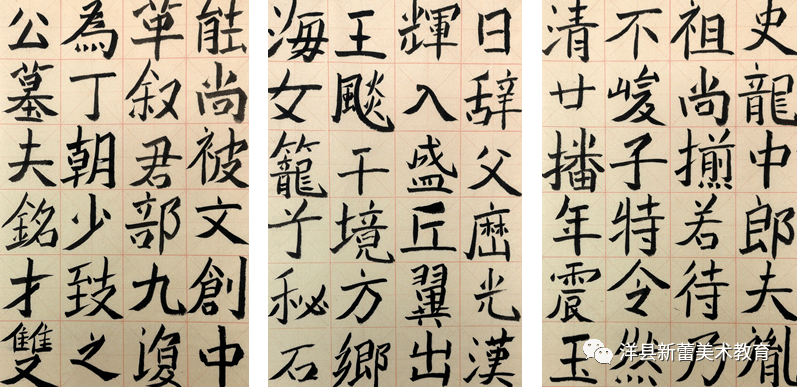 史龍中郎夫胤
祖尚揃若待乃
不峻子特令然
清廿播年震玉
日辞父歷光漢
輝入盛丘翼出
王飈干境方鄉
海女籠于秘石
能尚被文創中
草叙君部九復
為丁朝少致之
公墓夫銘才雙
洋县新蕾美术教育